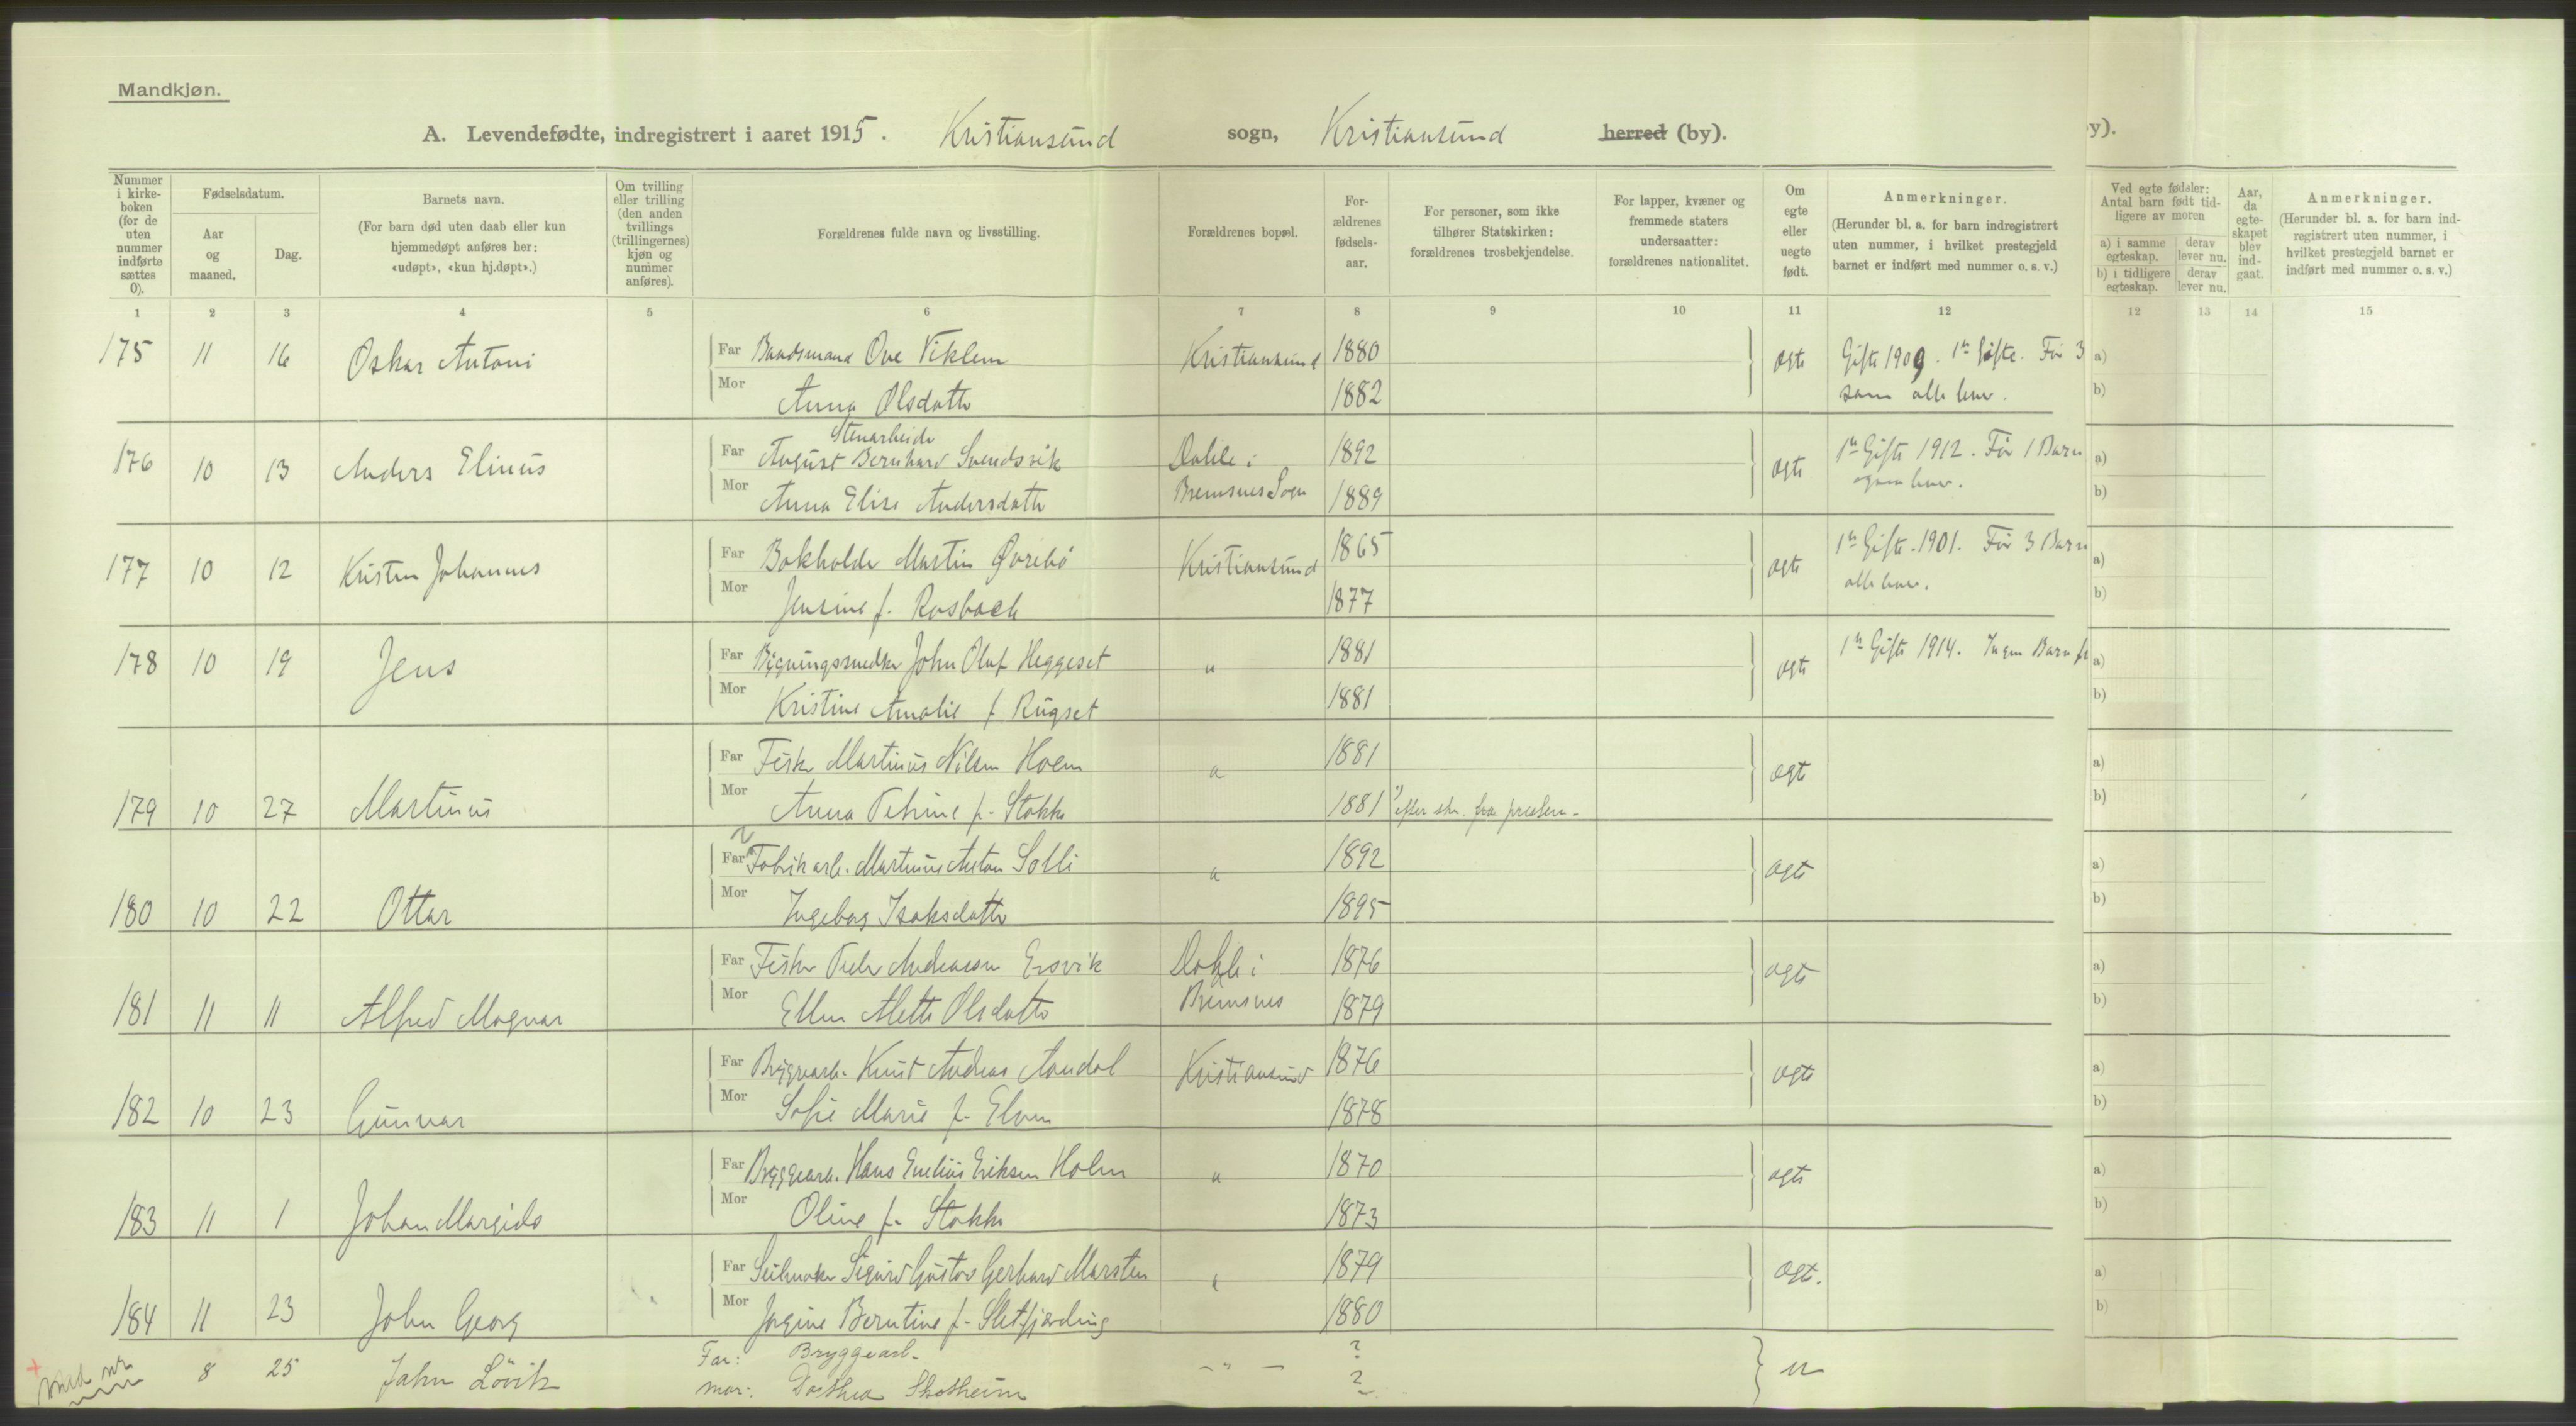 Mandkjøn.
A. Levendefødte, indregistrert i aaret 1915. Kristiansund sogn, Kristiansund herred (by).
y).
Nummer i kirkeboken (for de uten nummer indførte sættes 0).
Fødselsdatum.
Aar og maaned.
Dag.
Barnets navn.
(For barn død uten daab eller kun hjemmedøpt anføres her: «udøpt», «kun hj.døpt».)
Om tvilling eller trilling (den anden tvillings (trillingernes) kjøn og nummer anføres).
Forældrenes fulde navn og livsstilling.
Forældrenes bopæl.
Forældrenes fødselsaar.
For personer, som ikke tilhører Statskirken: forældrenes trosbekjendelse.
For lapper, kvæner og fremmede staters undersaatter: forældrenes nationalitet.
Om egte eller uegte født.
Anmerkninger.
(Herunder bl. a. for barn indregistrert uten nummer, i hvilket prestegjeld barnet er indført med nummer o. s. v.)
Ved egte fødsler: Antal barn født tidligere av moren
a) i samme egteskap. derav lever nu.
b) i tidligere egteskap. derav lever nu.
Aar, da egteskapet blev indgaat.
Anmerkninger.
(Herunder bl. a. for barn indregistrert uten nummer, i hvilket prestegjeld barnet er indført med nummer o. s. v.)
1 2 3 4 5 6 7 8 9 10 11 12 12 13 14 15
175 11 16 Oskar Antoni Far Baadsmand Ove Viklem Kristiansund 1880 egte Gifte 1909. 1ste Gifte. Før 3 a)
Mor Anna Olsdatter 1882 som alle lever. b)
Stenarbeider
176 10 13 Anders Elinus Far August Bernhard Svendsvik Dahle i 1892 egte 1ste Gifte 1912. Før 1 Barn a)
Mor Anna Elise Andersdatter Bremsnes Sogn 1889 lever. b)
177 10 12 Kristen Johannes Far Bokholder Martin Øvrebö Kristiansund 1865 egte 1ste Gifte. 1901. Før 3 Barn a)
Mor Jensine f. Rosbach 1877 alle lever. b)
178 10 19 Jens Far Bygningssnedker John Oluf Heggeset " 1881 egte 1ste Gifte 1914. Ingen Barn f a)
Mor Kristine Amalie f. Rugset 1881 b)
179 10 27 Martinus Far Fisker Martinus Nilsen Hoem " 1881 egte a)
Mor Anna Petrine f. Stokke 1881 efter skr. fra præsten. b)
180 10 22 Ottar Far Fabrikarb. Martinus Anton Solli " 1892 egte a)
Mor Ingeborg Isaksdatter 1895 b)
181 11 11 Alfred Magnar Far Fisker Peder Andreassen Ersvik Dahle i 1876 egte a)
Mor Ellen Alette Olsdatter Bremsnes 1879 b)
182 10 23 Gunvar Far Bryggearb. Knut Andreas Aandal Kristiansund 1876 egte a)
Mor Sofie Marie f. 1878 b)
183 11 1 Johan Margido Far Bryggearb. Hans Eriksen Holm " 1870 egte a)
Mor Oline f. Stokke 1873 b)
184 11 23 John Georg Far Seilmaker Sigurd Gustav Gerhard Marsten " 1879 egte. a)
Mor Jørgine Berntine f. Sletfjærding 1880 b)
8 25 John Lövik Far: Bryggearb. - " - ? u
mor: Dorthea Skotheim ?